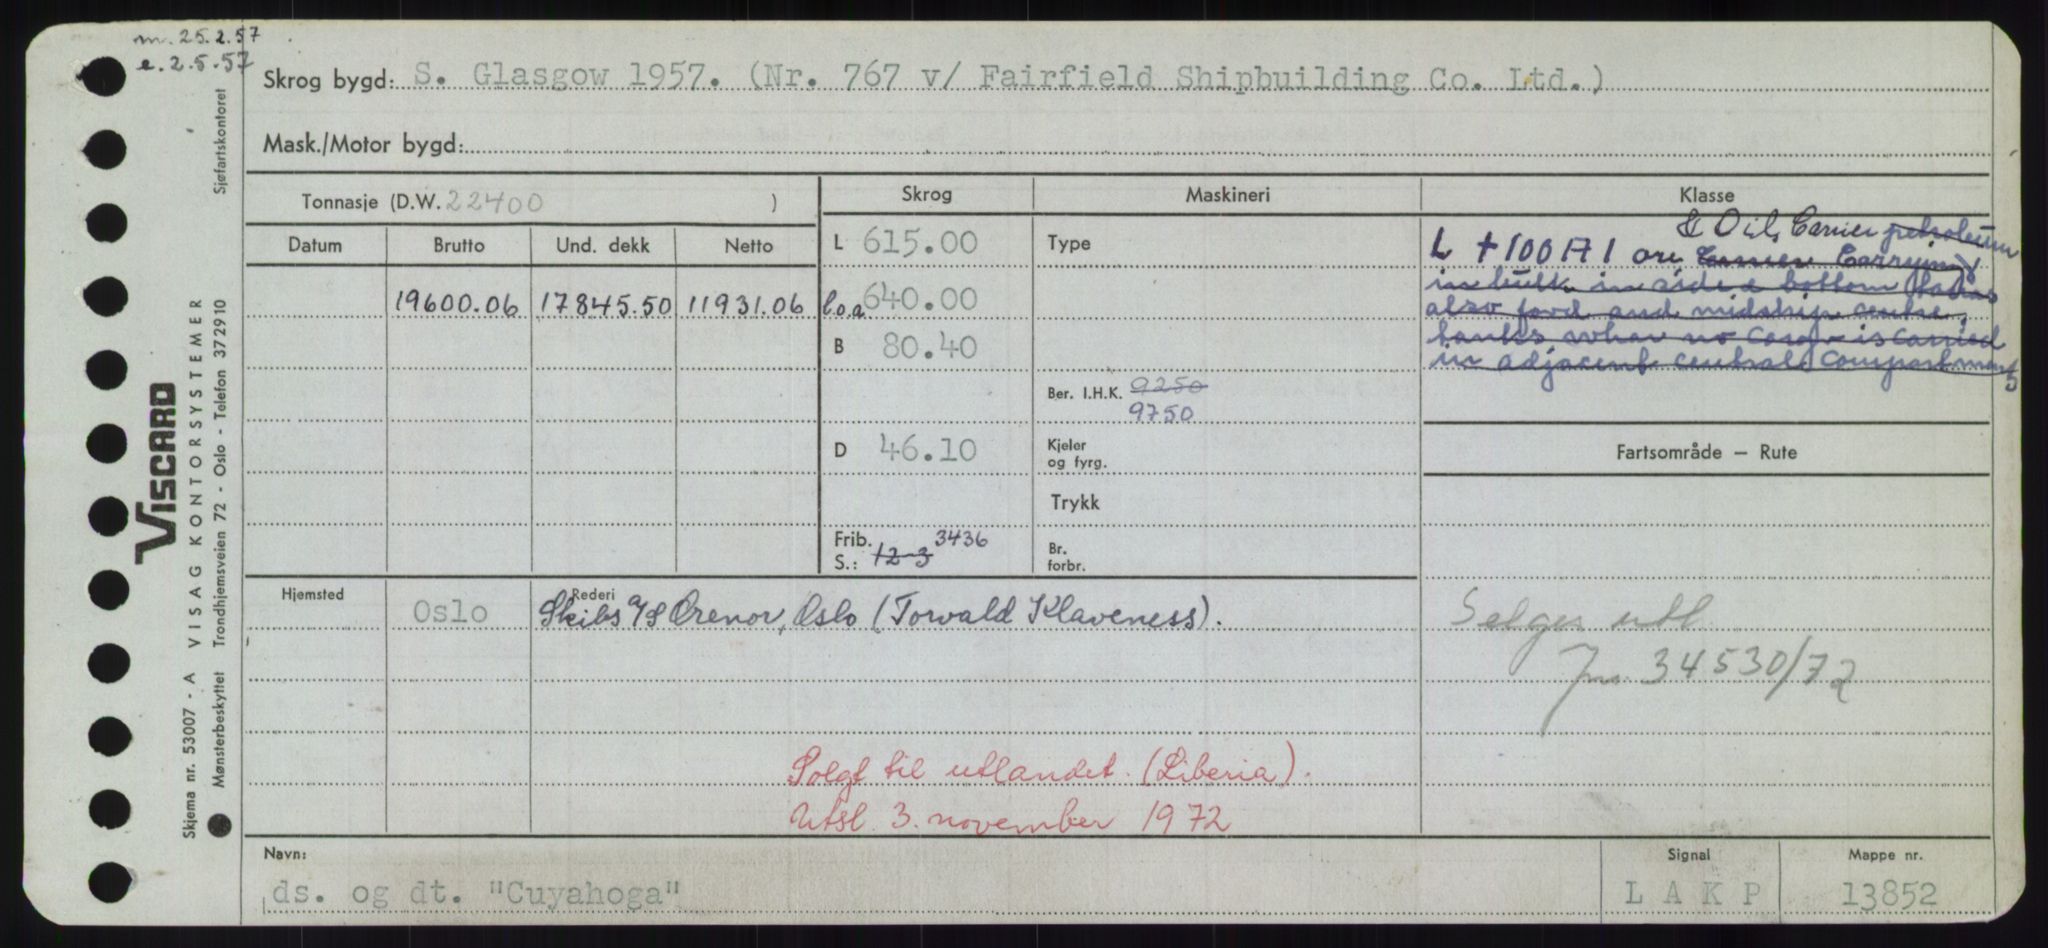 m. 25.2.57
e. 2.5.57
Skrog bygd: S. Glasgow 1957. (Nr. 767 v/ Fairfield Shipbuilding Co. Ltd.)
Mask./Motor bygd:
Tonnasje (D.W. 22400 )
Skrog
Maskineri
Klasse
Datum Brutto Und. dekk Netto
19600.06 17845.50 11931.06
L 615.00
l.o.a. 640.00
B 80.40
D 46.10
Frib. 3436
S.: 12-3
Type
Ber. I.H.K. 9250
9750
Kjeler
og fyrg.
Trykk
Br.
forbr.
& Oil Carrier petroleum
L +100A1 ore Carrier Carrying
in bulk in side & bottom tanks
also ford and midship centre
tanks when no cargo is carried
in adjacent central compartments
Fartsområde — Rute
Selges utl.
Jnr. 34530/72
Hjemsted
Oslo
Rederi
Skibs A/S Orenor, Oslo (Torvald Klaveness).
Solgt til utlandet. (Liberia).
Utsl. 3. november 1972
Navn:
ds. og dt. "Cuyahoga"
Signal
L A K P
Mappe nr.
13852
VISCARD
VISAG KONTORSYSTEMER
Skjema nr. 53007 - A
Mønsterbeskyttet Trondhjemsveien 72 - Oslo - Telefon 372910 Sjøfartskontoret